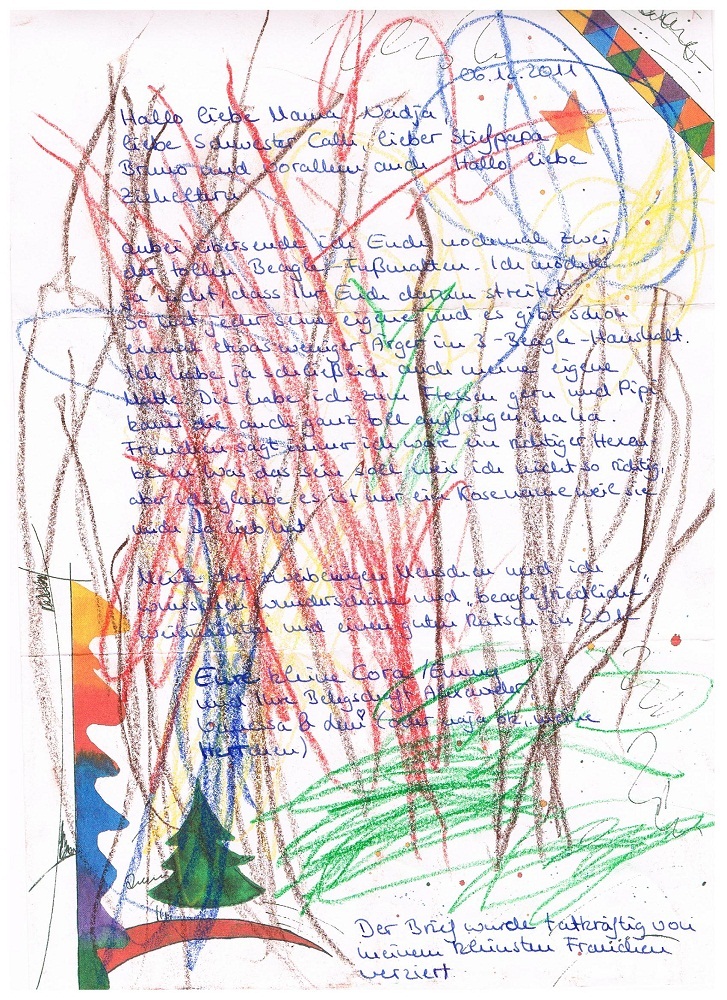 06.12.2011
Hallo liebe Mama Nadja,
liebe Schwester Calli, lieber Stiefpapa
Bruno und vorallem auch Hallo liebe
Zieheltern
anbei übersende ich Euch nochmal zwei
der tollen Beagle-Fußmatten. Ich möchte
ja nicht, dass Ihr Euch darum streitet.
So hat jeder seine eigene und es gibt schon
einmal etwas weniger Ärger im 3-Beagle-Haushalt.
Ich habe ja schließlich auch meine eigene
Matte. Die habe ich zum Fressen gern und Pipi
kann die auch ganz toll auffangen, ha ha.
Frauchen sagt immer ich wäre ein richtiger Hexen
was das sein soll weis ich nicht so richtig,
aber ich glaube es ist nur eine Kosename weil sie
mich so lieb hat.
Meine drei zweibeinigen Menschen und ich
wünschen wunderschöne und „beaglefriedliche"
Weihnachten und einen guten Rutsch in 2012
Eure kleine Cora / Emma
und Ihre Alexander
& (oder naja ok, meine
Herrchen)
Der Brief wurde tatkräftig von
meinem kleinsten Frauchen
verziert.